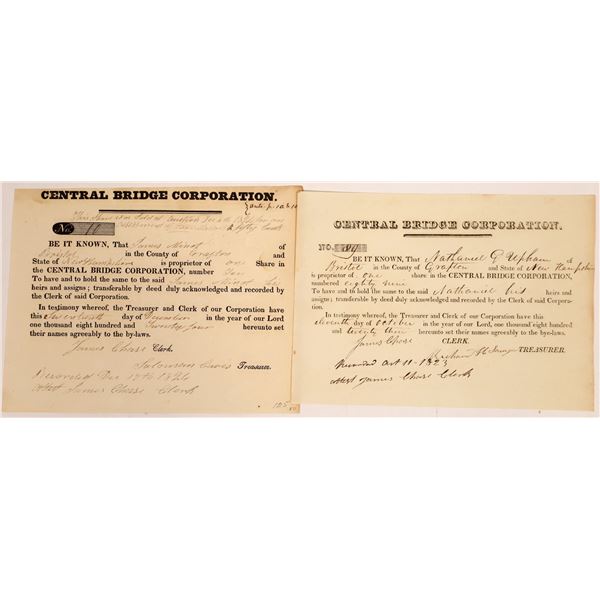 CENTRAL BRIDGE CORPORATION.
This Share was Sold at Auction Dec 6th
fifty Cents
No. 11
BE IT KNOWN, That James Minot of
Bristol in the County of Grafton and
State of New Hampshire is proprietor of one Share in
the CENTRAL BRIDGE CORPORATION, number Ten
To have and to hold the same to the said James Minot his
heirs and assigns; transferable by deed duly acknowledged and recorded by
the Clerk of said Corporation.
In testimony whereof, the Treasurer and Clerk of our Corporation have
this day of December in the year of our Lord
one thousand eight hundred and Twenty four hereunto set
their names agreeably to the bye-laws.
James Chase Clerk.
Solomon Treasurer.
Recorded Dec 1824
Attest James Chase Clerk
125
CENTRAL BRIDGE CORPORATION.
NO.
BE IT KNOWN, That Nathaniel G Upham of
Bristol in the County of Grafton and State of New Hampshire
is proprietor of one share in the CENTRAL BRIDGE CORPORATION,
numbered eighty nine
To have and to hold the same to the said Nathaniel his heirs and
assigns; transferable by deed duly acknowledged and recorded by the Clerk of said Corpora-
tion.
In testimony whereof, the Treasurer and Clerk of our Corporation have this
eleventh day of October in the year of our Lord, one thousand eight hundred
and twenty three hereunto set their names agreeably to the bye-laws.
James Chase CLERK.
Ichabod TREASURER.
Recorded Oct 11 - 1823
Attest James Chase Clerk